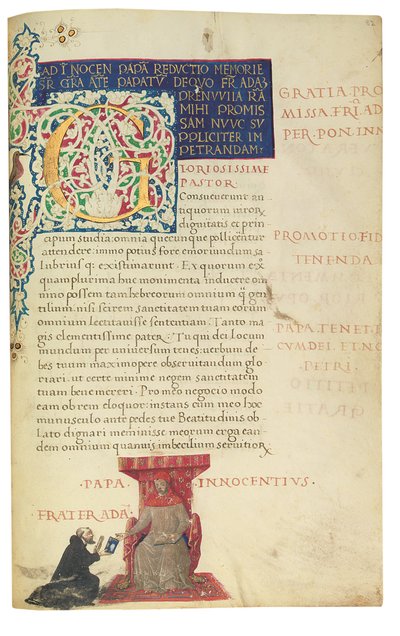 82
AD INOCEN PAPÃ REDUCTIO MEMORIE
SR̃ GRA ATE PAPATV̄ DEQVO FR̃ ADA
PRENVVIIA RÃ
MIHI PROMIS
SAM NVVC SV
PPLICITER IM
PETRANDAM
GLORIOSISSIME
PASTOR.
Consueverunt an
tiquorum virorx̨
dignitatis et prin
capum studia: omnia quecunque pollicentur
attendere: immo potius fore emoriundum sa
lubrius q̃ existimarunt. Ex quorum ex̨
quamplurima huc monumenta inducere om
nino possem tam hebreorum omnium q̃ gen
tilium: nisi scirem sanctitatem tuam eorum
omnium lectitavisse sententiam. Tanto ma
gis clementissime pater. Tu qui dei locum
mundum per universum tenes: verbum de
bes tuum maximopere observitandum glo
riari: ut certe minime negem sanctitatem
tuam bene mereri. Pro meo negocio modo
eam ob rem eloquor: instans cum meo hoc
munusculo ante pedes tue Beatitudinis ob
lato dignari meminisse meorum erga ean
dem omnium quamvis imbecilium servitiorx̨
GRATIA PRO
MISSA FRI AD
PER PON INN
PROMOTIO FID
TENENDA
PAPA TENET L
CVM DEI ET NO
PETRI
·PAPA· INNOCENTIVS·
·FRATER ADA·